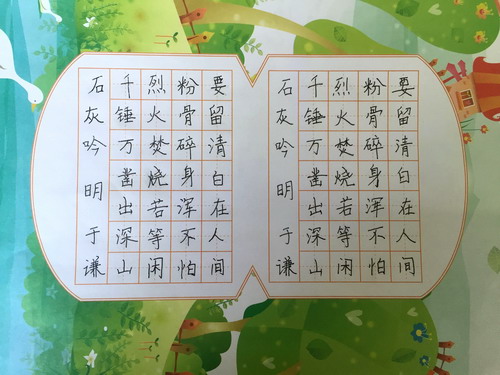 石灰吟 明 于谦
千锤万凿出深山
烈火焚烧若等闲
粉骨碎身浑不怕
要留清白在人间
石灰吟 明 于谦
千锤万凿出深山
烈火焚烧若等闲
粉骨碎身浑不怕
要留清白在人间